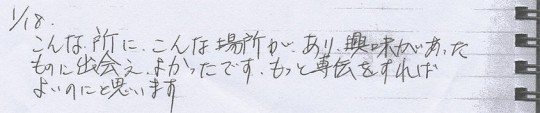 1/18.
こんな所に、こんな場所が、あり、興味があった
ものに出会え、よかったです、もっと専伝をすれば
よいのにと思います